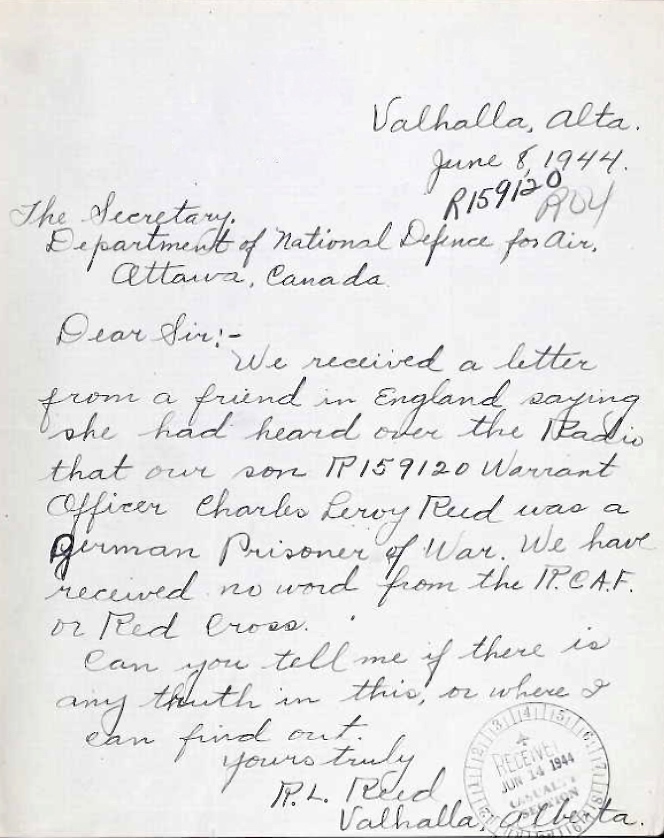 Valhalla, Alta.
June 8, 1944.
R159120
The Secretary.
Department of National Defence for Air,
Ottawa, Canada.
Dear Sir:-
We received a letter
from a friend in England saying
she had heard over the Radio
that our son R159120 Warrant
Officer Charles Leroy Reed was a
german Prisoner of War. We have
received no word from the R.C.A.F.
or Red Cross.
Can you tell me if there is
any thruth in this, or where I
can find out.
yours truly
R.L. Reed
Valhalla, Alberta.
RECEIVED
JUN 14 1944
CASUALTY
SECTION